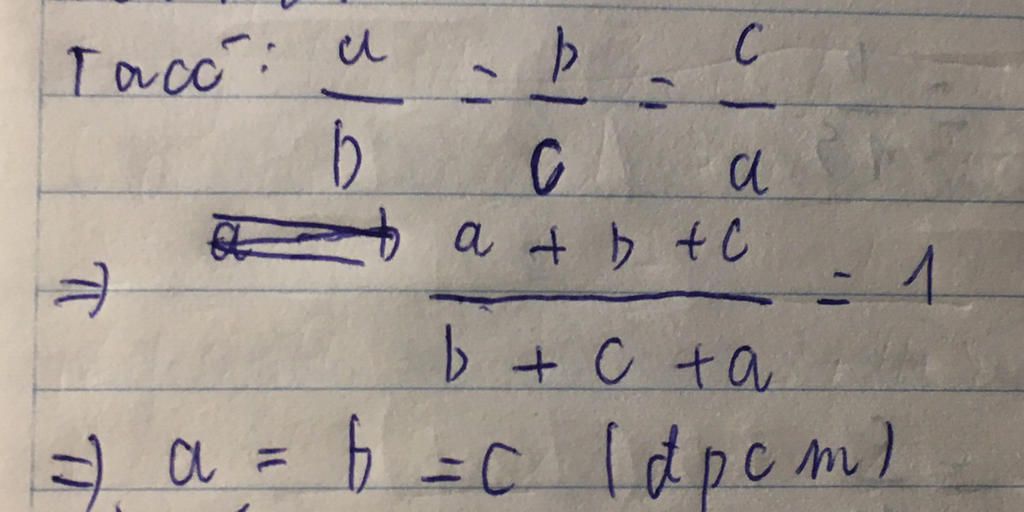 Ta có: a/b = b/c = c/a
⇒ a + b + c / b + c + a = 1
⇒ a = b = c (dpcm)